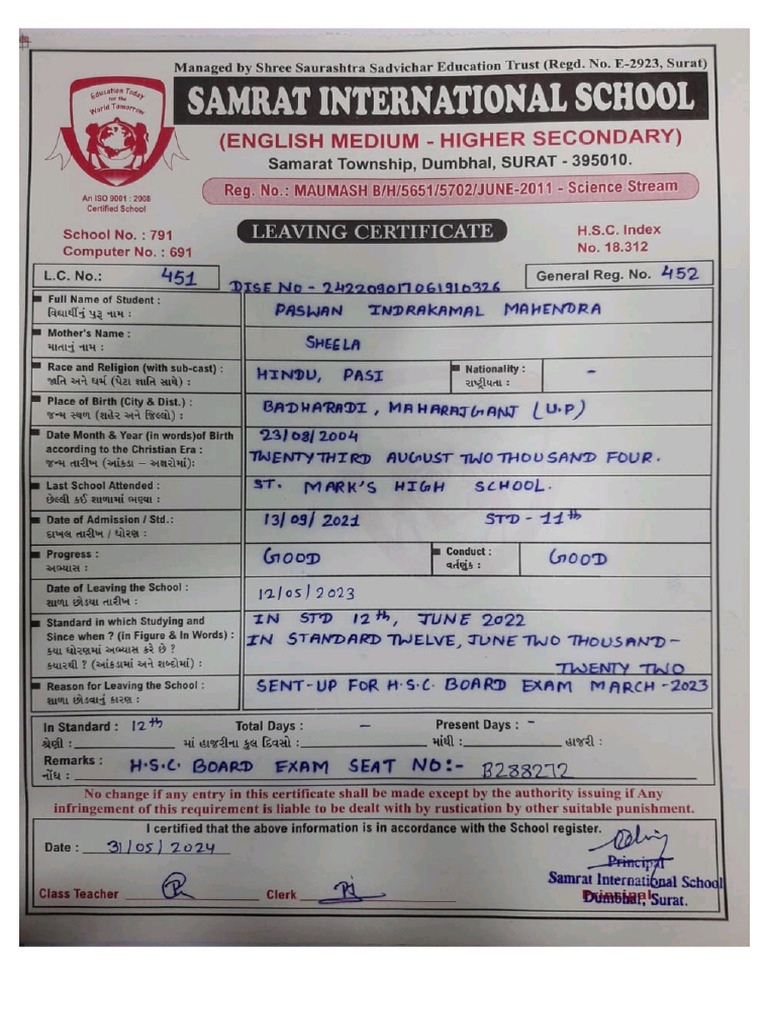 Managed by Shree Saurashtra Sadvichar Education Trust (Regd. No. E-2923, Surat)
Education Today
for the
World Tomorrow
An ISO 9001 : 2008
Certified School
SAMRAT INTERNATIONAL SCHOOL
(ENGLISH MEDIUM - HIGHER SECONDARY)
Samarat Township, Dumbhal, SURAT - 395010.
Reg. No.: MAUMASH B/H/5651/5702/JUNE-2011 - Science Stream
School No. : 791
Computer No. : 691
LEAVING CERTIFICATE
H.S.C. Index
No. 18.312
L.C. No.: 451
DISE NO - 242209017061910326
General Reg. No. 452
Full Name of Student : PASWAN INDRAKAMAL MAHENDRA
વિદ્યાર્થીનું પુરૂ નામ :
Mother's Name : SHEELA
માતાનું નામ :
Race and Religion (with sub-cast) : HINDU, PASI Nationality : -
જાતિ અને ધર્મ (પેટા જ્ઞાતિ સાથે) : રાષ્ટ્રીયતા :
Place of Birth (City & Dist.) : BADHARADI, MAHARAJGANJ (U.P)
જન્મ સ્થળ (શહેર અને જિલ્લો) :
Date Month & Year (in words)of Birth 23/08/2004
according to the Christian Era : TWENTY THIRD AUGUST TWO THOUSAND FOUR.
જન્મ તારીખ (આંકડા - અક્ષરોમાં):
Last School Attended : ST. MARK'S HIGH SCHOOL.
છેલ્લી કઈ શાળામાં ભણ્યા :
Date of Admission / Std.: 13/09/2021 STD - 11th
દાખલ તારીખ / ધોરણ :
Progress : GOOD Conduct : GOOD
અભ્યાસ : વર્તણુંક :
Date of Leaving the School : 12/05/2023
શાળા છોડયા તારીખ :
Standard in which Studying and IN STD 12th, JUNE 2022
Since when ? (in Figure & In Words) : IN STANDARD TWELVE, JUNE TWO THOUSAND-
કયા ધોરણમાં અભ્યાસ કરે છે ? TWENTY TWO
કયારથી ? (આંકડામાં અને શબ્દોમાં) :
Reason for Leaving the School : SENT-UP FOR H.S.C. BOARD EXAM MARCH-2023
શાળા છોડવાનું કારણ :
In Standard : 12th Total Days : - Present Days : -
શ્રેણી : માં હાજરીના કુલ દિવસો : માંથી : હાજરી :
Remarks : H.S.C. BOARD EXAM SEAT NO:- B288272
નોંધ :
No change if any entry in this certificate shall be made except by the authority issuing if Any
infringement of this requirement is liable to be dealt with by rustication by other suitable punishment.
I certified that the above information is in accordance with the School register.
Date : 31/05/2024
Principal
Samrat International School
Dumbhal, Surat.
Principal
Class Teacher Clerk